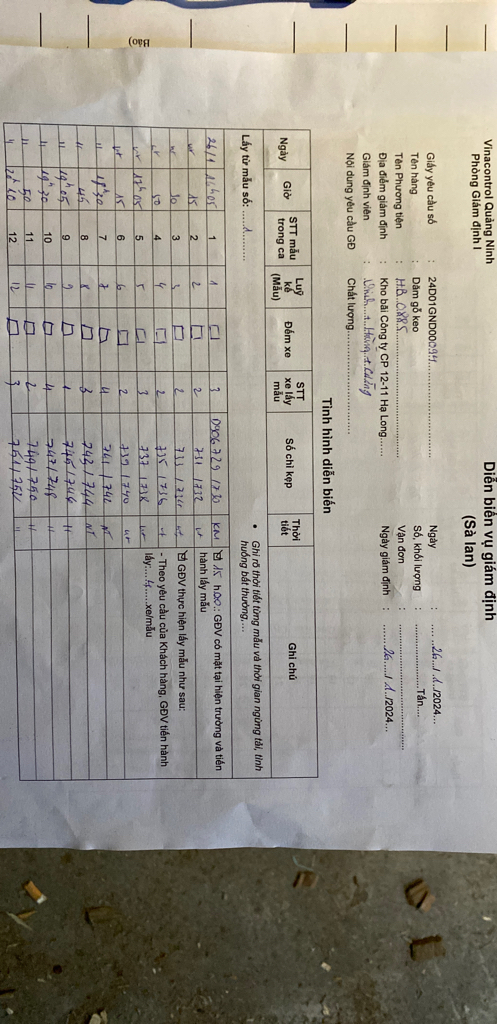 Vinacontrol Quảng Ninh
Phòng Giám định I
Diễn biến vụ giám định
(Sà lan)
Giấy yêu cầu số : 24D01GND00094
Tên hàng : Dăm gỗ keo
Tên Phương tiện : HB 0885
Địa điểm giám định : Kho bãi Công ty CP 12-11 Hạ Long
Giám định viên :
Nội dung yêu cầu GĐ : Chất lượng
Ngày : 26/1/2024
Số, khối lượng : Tấn
Vận đơn :
Ngày giám định : 26/1/2024
Tình hình diễn biến
• Ghi rõ thời tiết từng mẫu và thời gian ngừng tải, tình huống bất thường,...
Lấy từ mẫu số: 1
Ngày Giờ STT mẫu trong ca Luỹ kế (Mẫu) Đếm xe STT xe lấy mẫu Số chì kẹp Thời tiết Ghi chú
26/1 16h05 1 1 3 0906729/730 KM
15 2 2 2 731/732
30 3 3 2 733/734
50 4 4 2 735/736
17h05 5 5 3 737/738
15 6 6 2 739/740
18h30 7 7 4 741/742 NT
45 8 8 3 743/744 NT
19h05 9 9 1 745/746 11
19h30 10 10 4 747/748 11
50 11 11 2 749/750 11
20h10 12 12 3 751/752 11
15 h00: GĐV có mặt tại hiện trường và tiến hành lấy mẫu
GĐV thực hiện lấy mẫu như sau:
- Theo yêu cầu của Khách hàng, GĐV tiến hành lấy 4 xe/mẫu